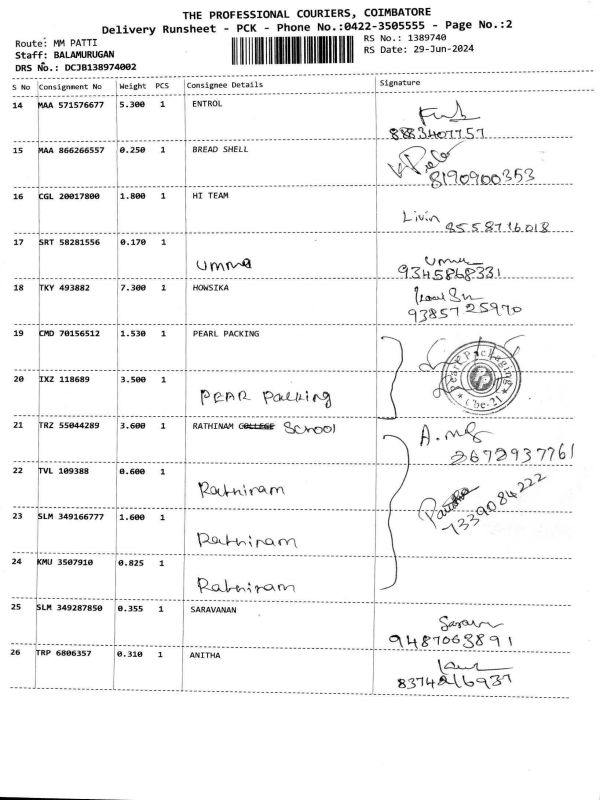 THE PROFESSIONAL COURIERS, COIMBATORE
Delivery Runsheet - PCK - Phone No.:0422-3505555 - Page No.:2
Route: MM PATTI RS No.: 1389740
Staff: BALAMURUGAN RS Date: 29-Jun-2024
DRS No.: DCJB138974002
S No Consignment No Weight PCS Consignee Details Signature
14 MAA 571576677 5.300 1 ENTROL
8883407757
15 MAA 866266557 0.250 1 BREAD SHELL
8190900353
16 CGL 20017800 1.800 1 HI TEAM
Livin 8558716018
17 SRT 58281556 0.170 1 umma
umma
9345868331
18 TKY 493882 7.300 1 HOWSIKA
9385725970
19 CMD 70156512 1.530 1 PEARL PACKING
Pearl Packaging
PP
Cbe-21
20 IXZ 118689 3.500 1
PEAR Packing
21 TRZ 55044289 3.600 1 RATHINAM COLLEGE School
2672937761
22 TVL 109388 0.600 1
Rathinam
7339084222
23 SLM 349166777 1.600 1
Rathinam
24 KMU 3507910 0.825 1
Rathinam
25 SLM 349287850 0.355 1 SARAVANAN
Saravn
9487063891
26 TRP 6806357 0.310 1 ANITHA
8374216937